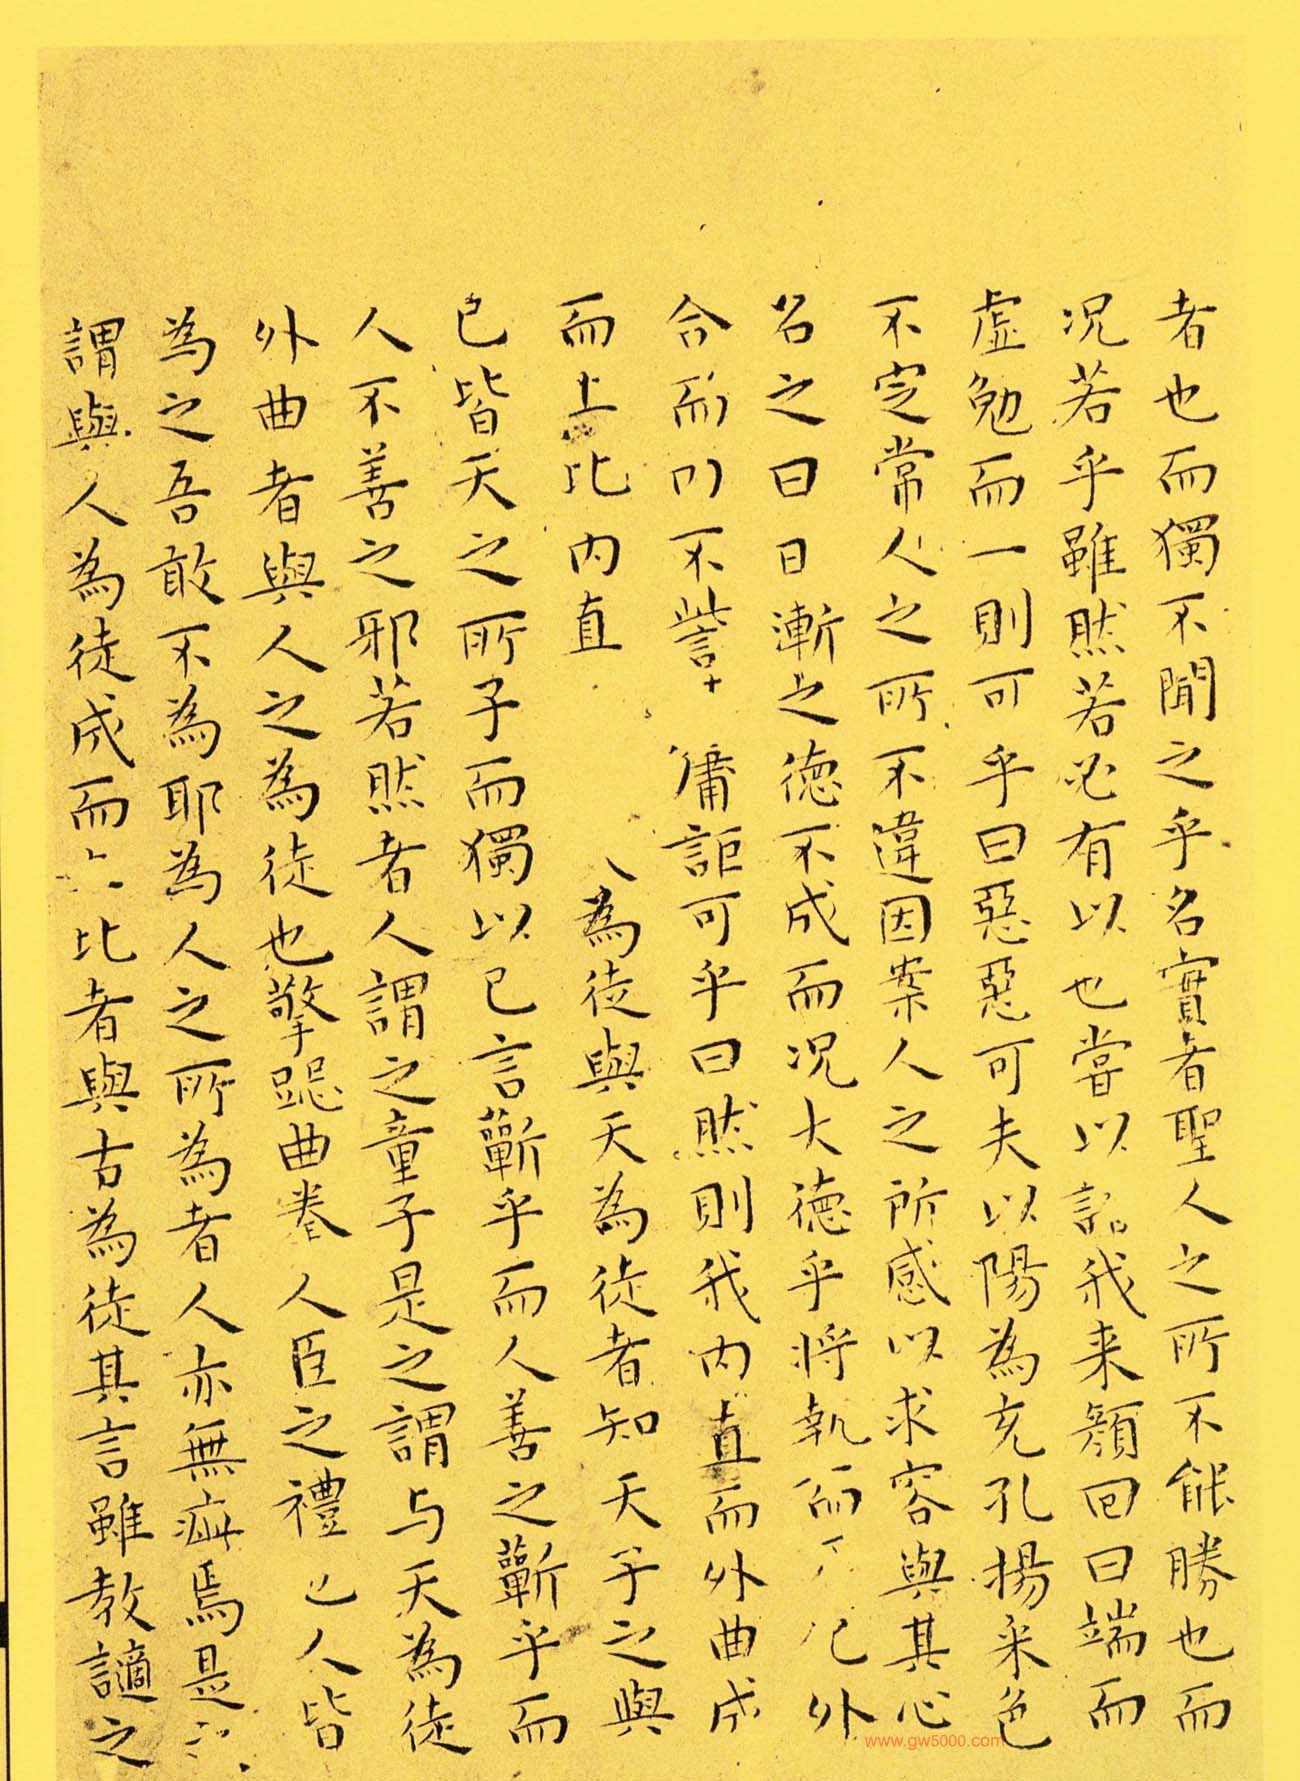 者也而獨不聞之乎名實者聖人之所不能勝也而
况若乎雖然若必有以也嘗以語我来顏回曰端而
虛勉而一則可乎曰惡惡可夫以陽為充孔揚采色
不定常人之所不違因案人之所感以求容與其心
名之曰日漸之德不成而况大德乎將執而不化外
合而内不訾其庸詎可乎曰然則我内直而外曲成
而上比内直為徒與天為徒者知天子之與
已皆天之所子而獨以已言蘄乎而人善之蘄乎而
人不善之邪若然者人謂之童子是之謂与天為徒
外曲者與人之為徒也擎跽曲拳人臣之禮也人皆
為之吾敢不為耶為人之所為者人亦無疵焉是
謂與人為徒成而比者與古為徒其言雖教讁之
www.gw5000.com